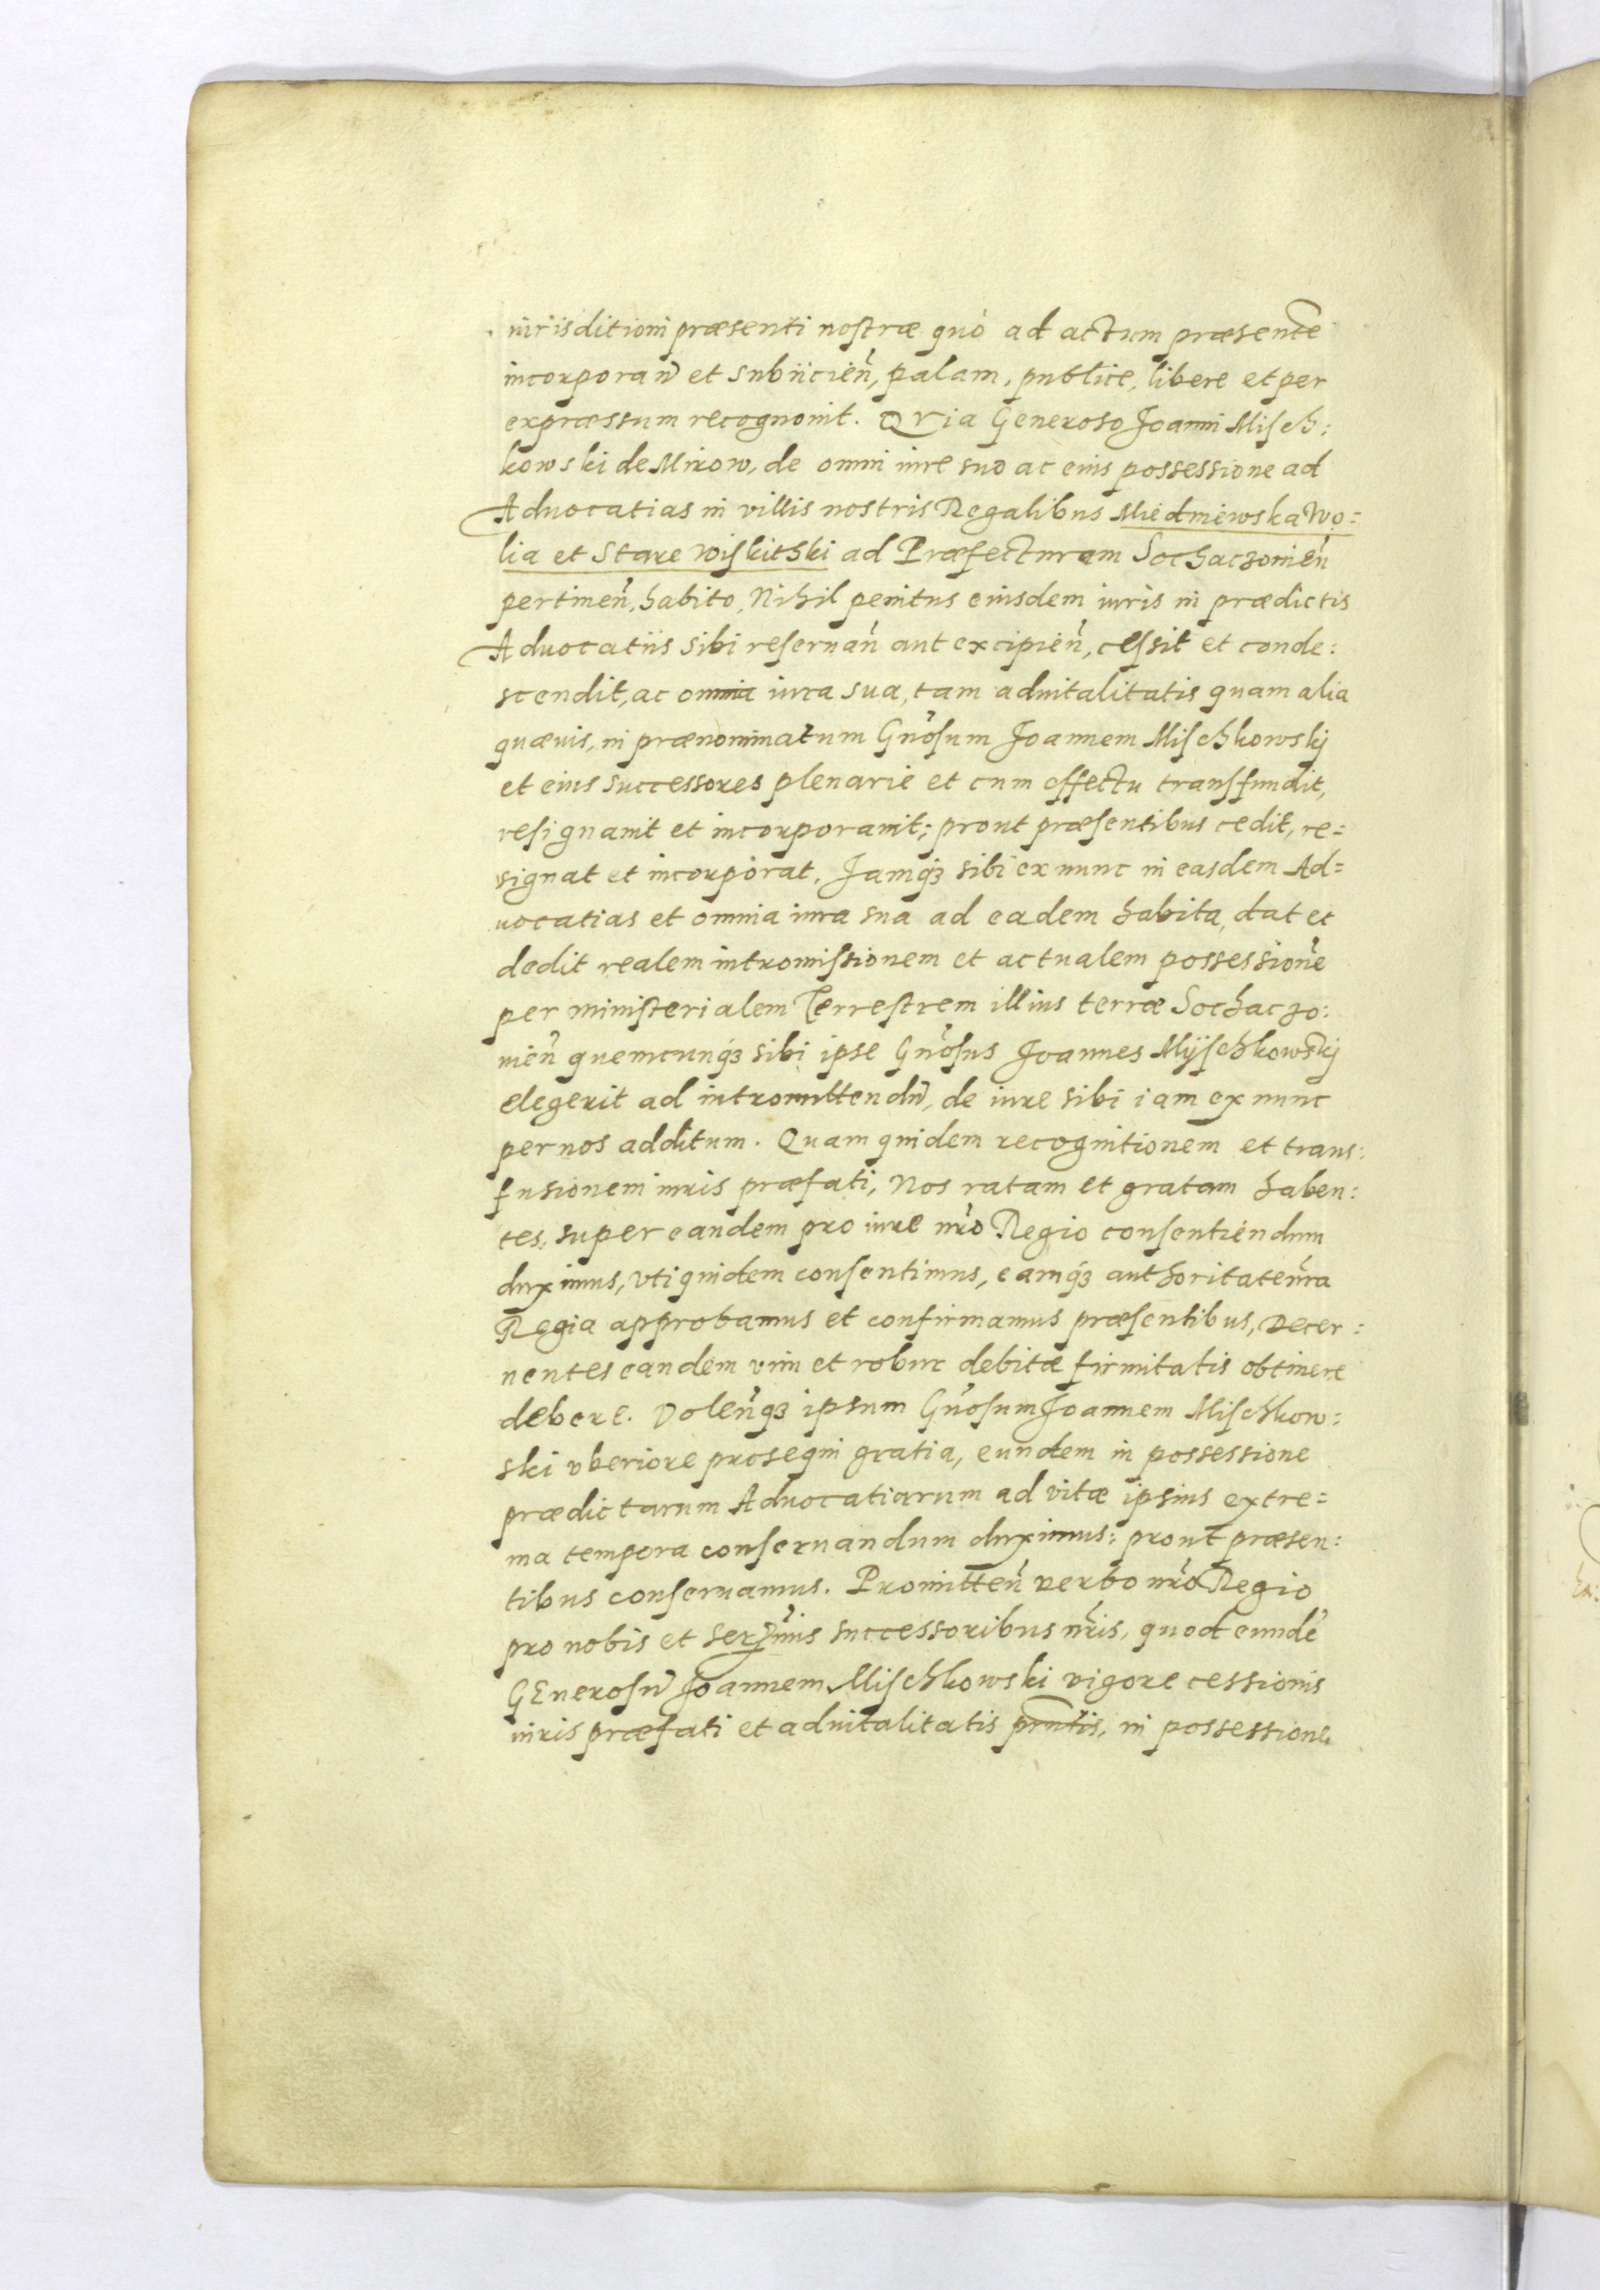 iurisditioni præsenti nostræ quò ad actum præsente
incorporañ et subiicieñ, palam, publice, libere et per
expræssum recognouit. QVia Generoso Joanni Misch:
kowski de Mirow, de omni iure suo ac eius possessione ad
Aduocatias in villis nostris Regalibus Miedniewska Wo=
lia et Stare Wiskitski ad Præfecturam Sochaczouieñ
pertineñ, habito, Nihil penitus eiusdem iuris in prædictis
Aduocatiis sibi reseruañ aut excipieñ, cessit et conde:
scendit, ac omnia iura sua, tam aduitalitatis quam alia
quæuis, in prænominatum Gñosum Joannem Mischkowskj
et eius successores plenarie et cum effectu transfundit,
resignauit et incorporauit; prout præsentibus cedit, re=
signat et incorporat. Jamqȝ sibi ex nunc in easdem Ad=
uocatias et omnia iura sua ad eadem habita, dat et
dedit realem intromissionem et actualem possessionẽ
per ministerialem Terrestrem illius terræ Sochaczo:
uieñ quemcunqȝ sibi ipse Gñosus Joannes Mÿschkowskj
elegerit ad intromittendũ, de iure sibi iam ex nunc
per nos additum. Quam quidem recognitionem et trans:
fusionem iuris præfati, Nos ratam et gratam haben:
tes, super eandem pro iure nr̃o Regio consentiendum
duximus, vti quidem consentimus, eamqȝ authoritate nr̃a
Regia approbamus et confirmamus præsentibus, Decer:
nentes eandem vim et robur debitæ firmitatis obtinere
debere. Voleñqȝ ipsum Gñosum Joannem Mischkow:
ski vberiore prosequi gratia, eundem in possessione
prædictarum Aduocatiarum ad vitæ ipsius extre=
ma tempora conseruandum duximus: prout præsen:
tibus conseruamus. Promitteñ verbo nr̃o Regio
pro nobis et serẽnis successoribus nr̃is, quod eundẽ
GEnerosũ Joannem Mischkowski vigore cessionis
iuris præfati et aduitalitatis pñtis, in possessione